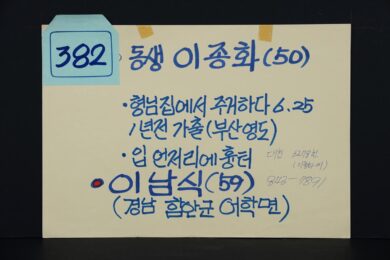 382
· 동생 이종화(50)
· 형님집에서 주거하다 6.25
1년전 가출(부산영도)
· 입 언저리에 흉터
· 이남식(59)
(경남 함안군 여학면)